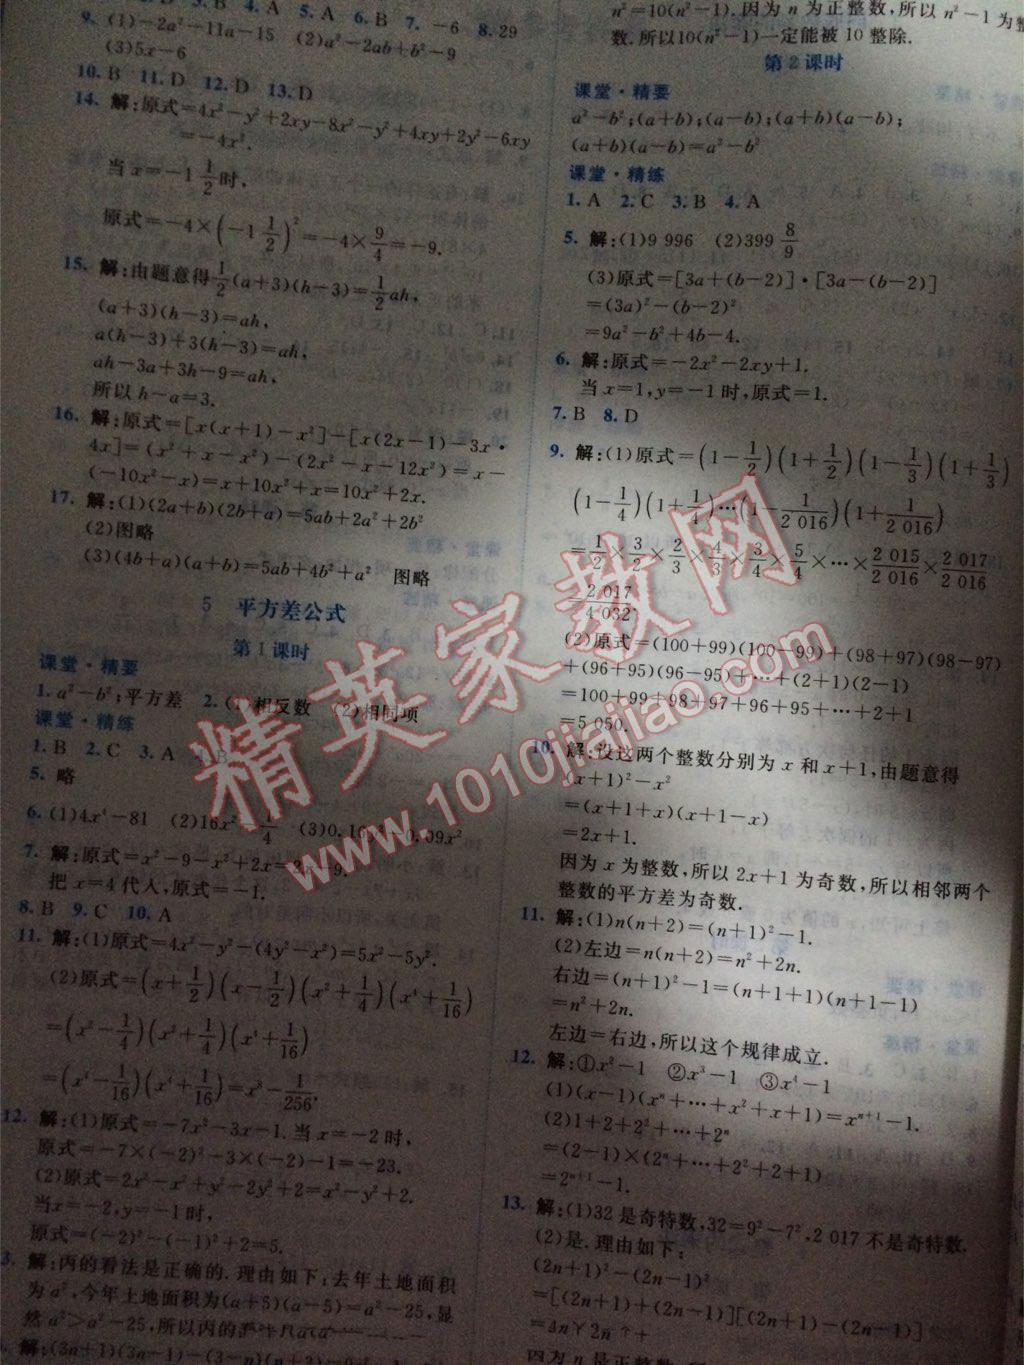 D 3. B 4. A 5. A 6. B 7. －6 8. 29
9. (1)－2a²－11a－15 (2)a²－2ab＋b²－9
(3)5x－6
10. B 11. D 12. D 13. D
14. 解:原式=4x²－y²＋2xy－8x²－y²＋4xy＋2y²－6xy
=－4x².
当 x=－1 1/2 时,
原式=－4×(－1 1/2)²=－4×9/4=－9.
15. 解:由题意得1/2(a＋3)(h－3)=1/2ah,
(a＋3)(h－3)=ah,
a(h－3)＋3(h－3)=ah,
ah－3a＋3h－9=ah,
所以 h－a=3.
16. 解:原式=[x(x＋1)－x²]－[x(2x－1)－3x·
4x]=(x²＋x－x²)－(2x²－x－12x²)=x－
(－10x²－x)=x＋10x²＋x=10x²＋2x.
17. 解:(1)(2a＋b)(2b＋a)=5ab＋2a²＋2b²
(2)图略
(3)(4b＋a)(a＋b)=5ab＋4b²＋a² 图略
5 平方差公式
第 1 课时
课堂·精要
1. a²－b²;平方差 2. (1)相反数 (2)相同项
课堂·精练
1. B 2. C 3. A 4. B
5. 略
6. (1)4x⁴－81 (2)16x²－1/4 (3)0.16 0.09x²
7. 解:原式=x²－9－x²＋2x=3 －9.
把 x=4 代人,原式=－1.
8. B 9. C 10. A
11. 解:(1)原式=4x²－y²－(4y²－x²)=5x²－5y².
(2)原式=(x＋1/2)(x－1/2)(x²＋1/4)(x⁴＋1/16)
=(x²－1/4)(x²＋1/4)(x⁴＋1/16)
=(x⁴－1/16)(x⁴＋1/16)=x⁸－1/256.
12. 解:(1)原式=－7x²－3x－1. 当 x=－2 时,
原式=－7×(－2)²－3×(－2)－1=－23.
(2)原式=2x²－x²＋y²－2y²＋2=x²－y²＋2.
当x=－2,y=－1时,
原式=(－2)²－(－1)²＋2=5.
3. 解:丙的看法是正确的. 理由如下:去年土地面积
为 a²,今年土地面积为(a＋5)(a－5)=a²－25,显
然 a²>a²－25,所以丙的
解:(3n＋1)(3n－1)－(3－n)(n＋3)=9n²
n²=10(n²－1). 因为 n 为正整数,所以 n²－1 为
数. 所以10(n²－1)一定能被 10 整除.
第 2 课时
课堂·精要
a²－b²;(a＋b);(a－b);(a＋b)(a－b);
(a＋b)(a－b)=a²－b²
课堂·精练
1. A 2. C 3. B 4. A
5. 解:(1)9 996 (2)399 8/9
(3)原式=[3a＋(b－2)]·[3a－(b－2)]
=(3a)²－(b－2)²
=9a²－b²＋4b－4.
6. 解:原式=－2x²－2xy＋1.
当 x=1,y=－1 时,原式=1.
7. B 8. D
9. 解:(1)原式=(1－1/2)(1＋1/2)(1－1/3)(1＋1/3)
(1－1/4)(1＋1/4)…(1－1/2 016)(1＋1/2 016)
=1/2×3/2×2/3×4/3×3/4×5/4×…×2 015/2 016×2 017/2 016
=2 017/4 032.
(2)原式=(100＋99)(100－99)＋(98＋97)(98－97)
＋(96＋95)(96－95)＋…＋(2＋1)(2－1)
=100＋99＋98＋97＋96＋95＋…＋2＋1
=5 050.
10. 解:设这两个整数分别为 x 和 x＋1,由题意得
(x＋1)²－x²
=(x＋1＋x)(x＋1－x)
=2x＋1.
因为 x 为整数,所以 2x＋1 为奇数,所以相邻两个
整数的平方差为奇数.
11. 解:(1)n(n＋2)=(n＋1)²－1.
(2)左边=n(n＋2)=n²＋2n.
右边=(n＋1)²－1=(n＋1＋1)(n＋1－1)
=n²＋2n.
左边=右边,所以这个规律成立.
12. 解:①x²－1 ②x³－1 ③x⁴－1
(1)(x－1)(xⁿ＋…＋x²＋x＋1)=xⁿ⁺¹－1.
(2)1＋2＋2²＋…＋2ⁿ
=(2－1)×(2ⁿ＋…＋2²＋2＋1)
=2ⁿ⁺¹－1.
13. 解:(1)32 是奇特数,32=9²－7²,2 017 不是奇特数.
(2)是. 理由如下:
(2n＋1)²－(2n－1)²
=[(2n＋1)＋(2n－1)][(2n＋1)－(2n－1)]
=4n×2
因为 n
精英家教网
www.1010jiajiao.com